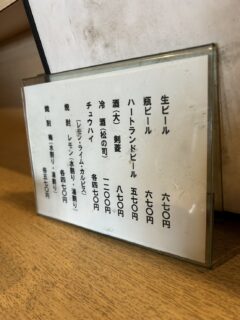 生ビール 六七〇円
瓶ビール 六七〇円
ハートランドビール 五七〇円
酒(大) 剣菱 八七〇円
冷酒(松の司) 一二〇〇円
チュウハイ 各四七〇円
(レモン・ライム・カルピス)
焼酎 レモン(水割り・湯割り) 各四七〇円
焼酎 梅(水割り・湯割り) 各五七〇円